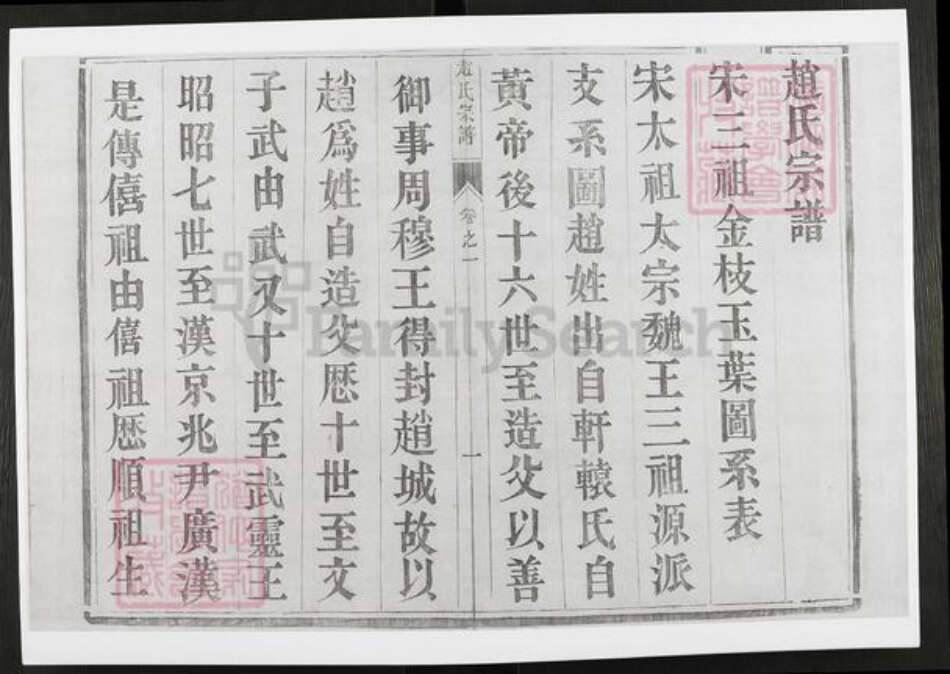 趙氏宗譜
宋三祖金枝玉葉圖系表
宋太祖太宗魏王三祖源派
支系圖趙姓出自軒轅氏自
黃帝後十六世至造父以善
趙氏宗譜 卷之一 一
御事周穆王得封趙城故以
趙爲姓自造父歷十世至文
子武由武又十世至武靈王
昭昭七世至漢京兆尹廣漢
是傳僖祖由僖祖歷順祖生
FamilySearch